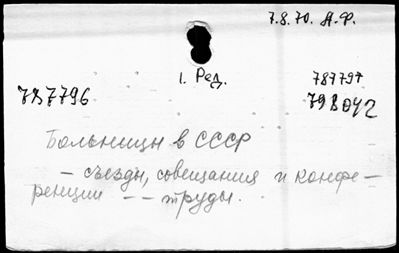 7.8.70. А.Ф.
1. Ред.
787797
787796
79В042
Больницы в СССР
- съезды, совещания и конфе-
ренции -- труды.